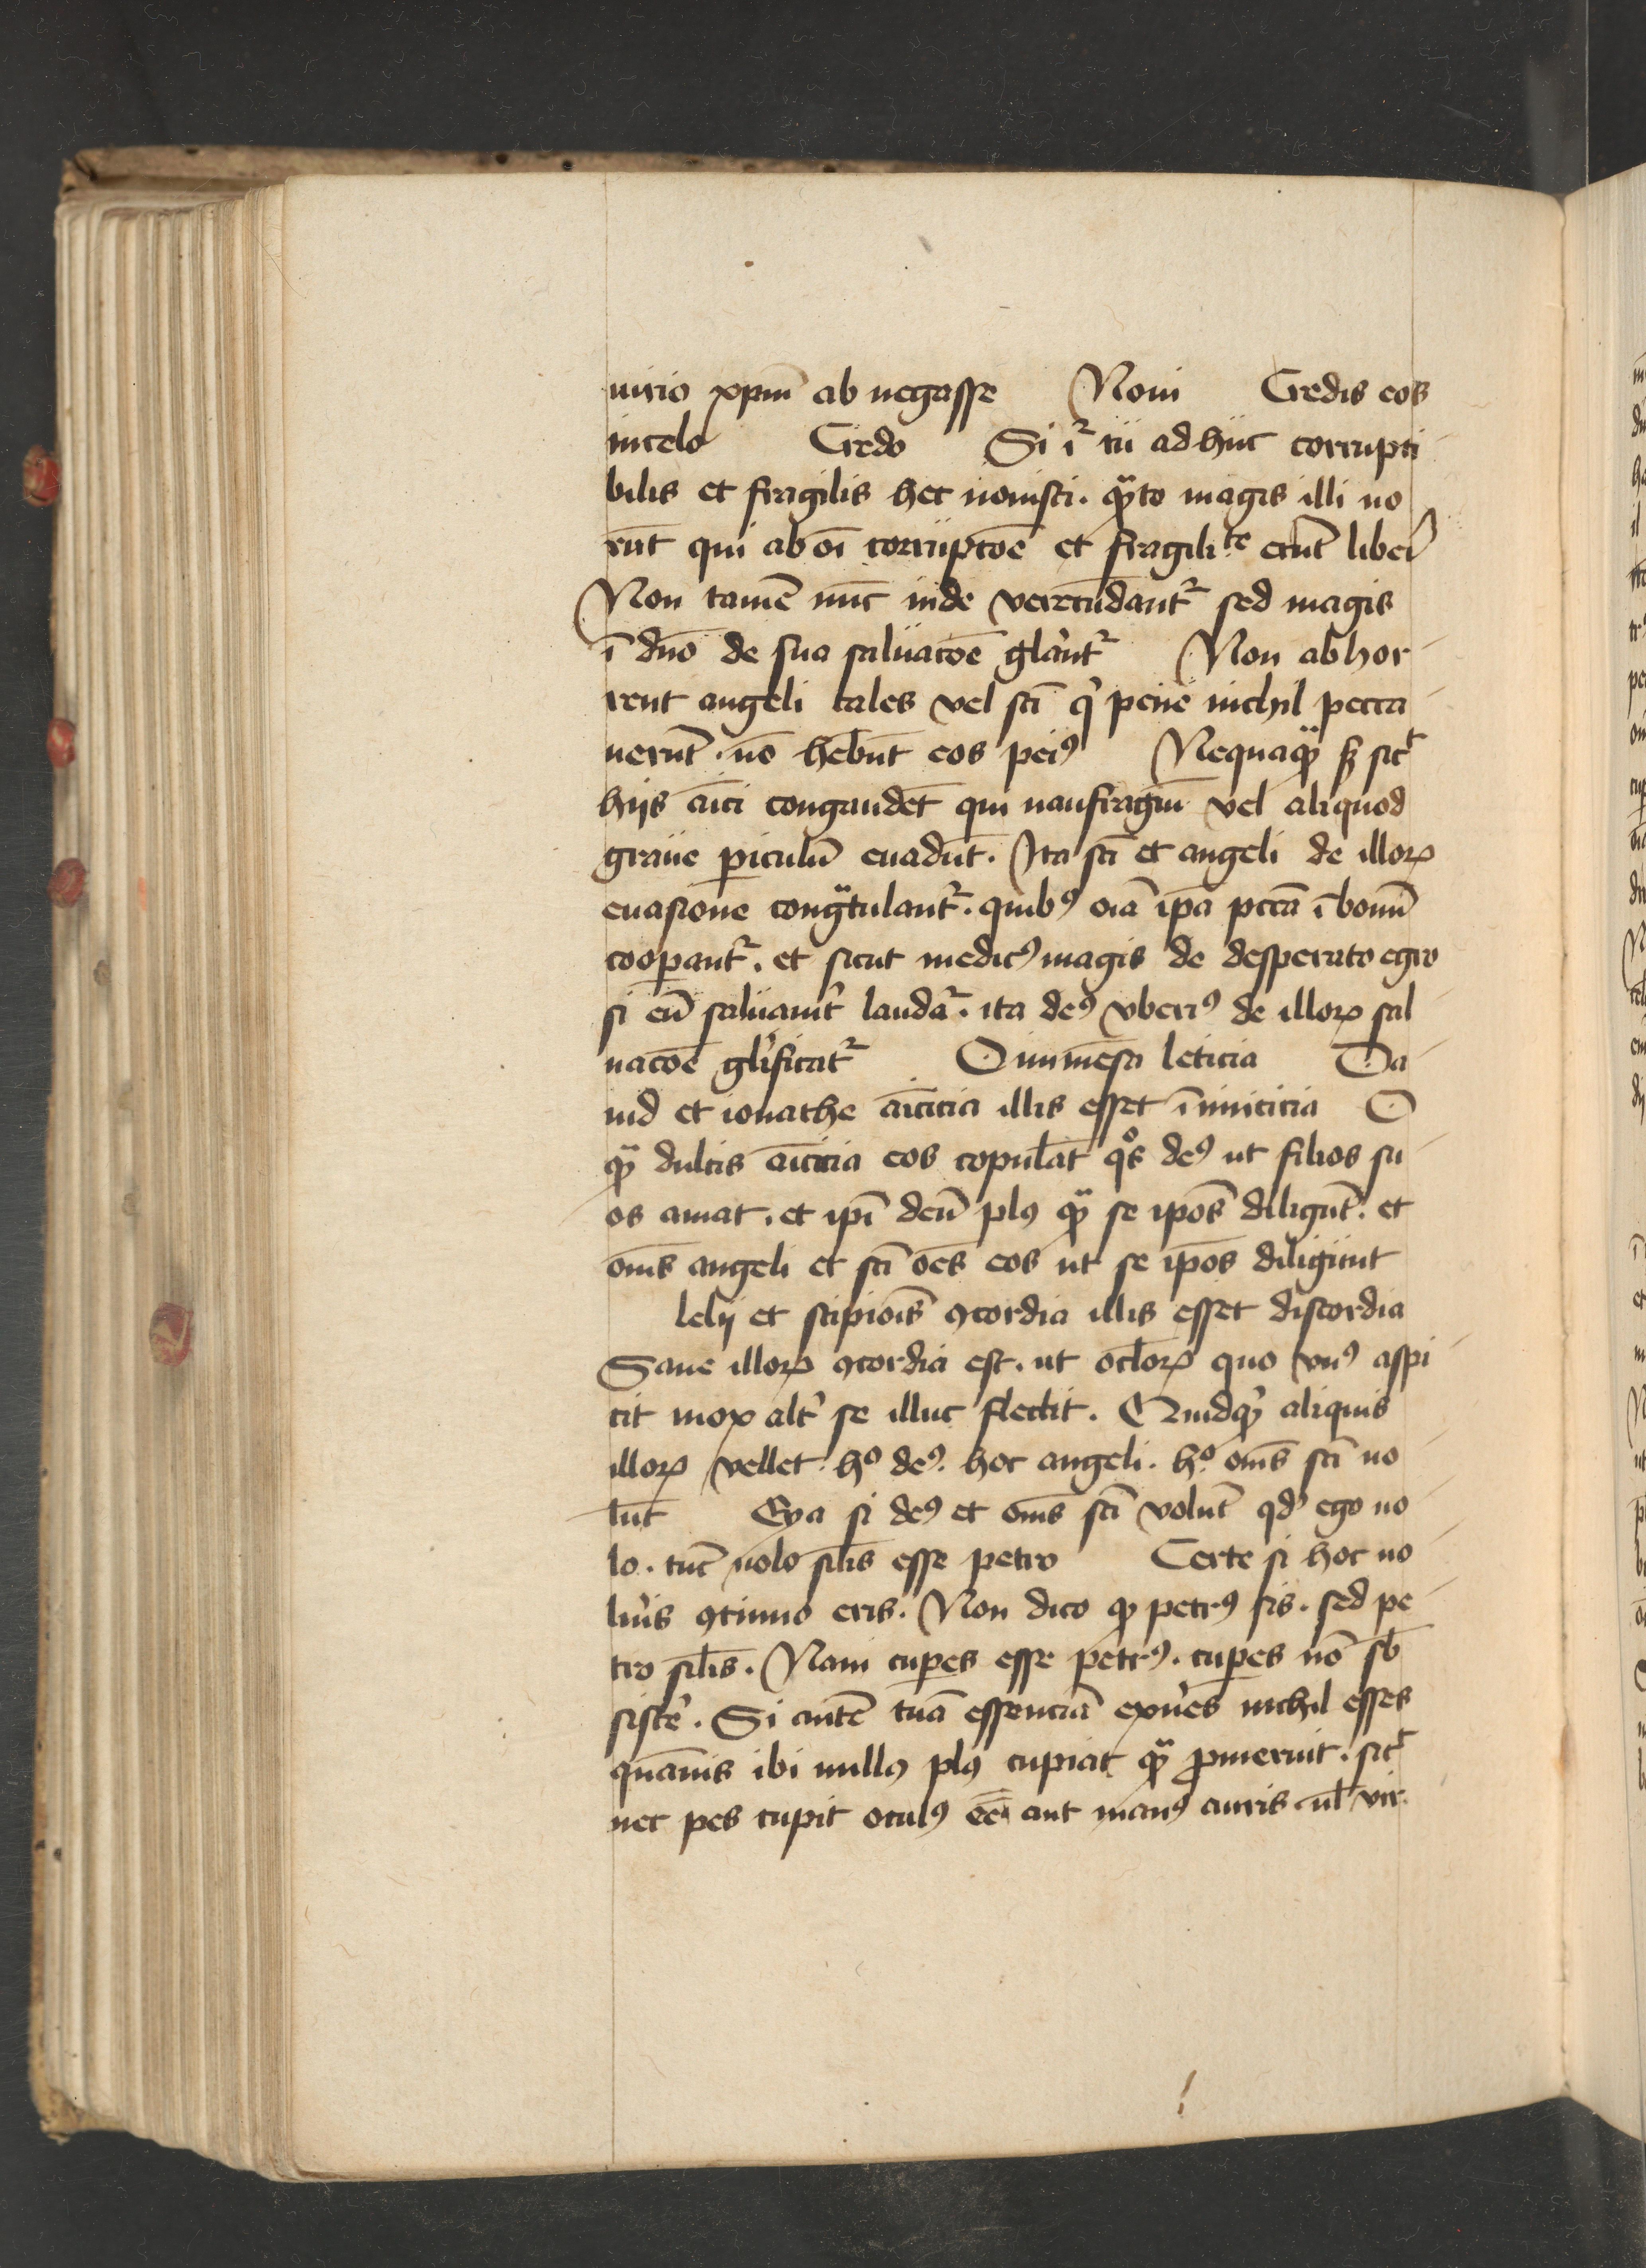 iurio xpm̄ ab negasse Noui Credis eos
in celo Credo Si iᷣ tu adhuc corrupti
bilis et fragilis hec nouisti. qᷓto magis illi no
rūt qui ab oī corrupcōe et fragilitͤ erūt liberi
Non tamē nūc inde verecūdantᷣ sed magis
ī dño de sua saluacōe gl'antᷣ Non abhor
rent angeli tales vel scī qⁱ pene nichil pecca
uerūt. nō hēbūt eos peiꝰ Nequaqᷓ sꝫ sicᷓt
hijs aīci congaudēt qui naufragiū vel aliquod
graue piculū euadūt. Ita scī et angeli de illoꝝ
euasione congᷓtulantᷣ. quibꝰ oīa ip̄a pcc̄a ī bonū
coopantᷣ. et sicut medicꝰ magis de desperato egro
si eū saluauit laudaᷣ. ita deꝰ vberiꝰ de illoꝝ sal
uacōe gl'ificatᷣ O inmēsa leticia Da
uid et ionathe aīcicia illis esset īimicicia O
qᷓ dulcis aīcicia eos copulāt qͦs deꝰ ut filios su
os amat. et ip̄i deū plꝰ qᷓ se ip̄os diligūt. et
om̄s angeli et scī oēs eos ut se ip̄os diligunt
lelij et scipiois̄ ꝯcordia illis esset discordia
Sane illoꝝ ꝯcordia est. ut oc̄loꝝ quo vnꝰ aspi
cit mox alt' se illuc flectit. Quidqᷓ aliquis
illoꝝ vellet. hͦ deꝰ. hoc angeli. hͦ. om̄s scī uo
lūt Eya si deꝰ et om̄s scī volūt qd' ego uo
lo. tūc uolo sil̄is esse petro Certe si hoc uo
lu'is ꝯtinuo eris. Non dico qꝫ petrꝰ sis. sed pe
tro sil̄is. Nam cupes esse petrꝰ. cupes nō sb̄
sist'e. Si autē tuā essenciā exu'es nichil esses
quāuis ibi nullꝰ plꝰ cupiat qᷓ ꝓmeruit. sicᷓt
nec pes cupit oculꝰ eē aut manꝰ auris. ul̄ vir.